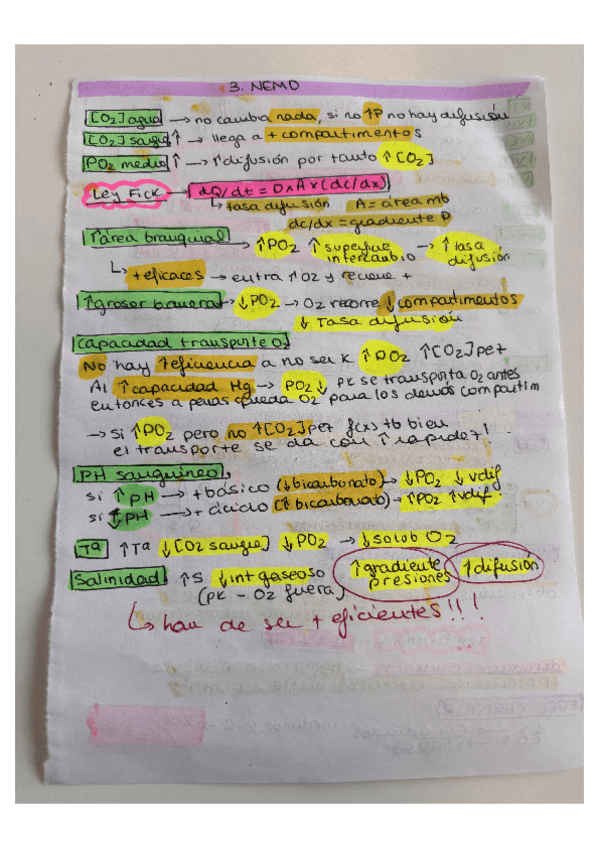 3. NEMO
[O2] agua → no cambia nada, si no ↑P no hay difusión
[O2] sangre ↑ → llega a + compartimentos
PO2 medio ↑ → ↑difusión por tanto ↑[O2]
Ley Fick → dQ/dt = D x A x (dc/dx)
↳ tasa difusión A = área mb
dc/dx = gradiente P
↑área branquial → ↑PO2 ↑ superficie intercambio → ↑ tasa difusión
↳ + eficaces → entra ↑O2 y recorre +
↑grosor barrera → ↓PO2 → O2 recorre ↓ compartimentos
↓ Tasa difusión
Capacidad transporte O2
No hay ↑eficiencia a no ser k ↑PO2 ↑[O2] pez
Al ↑ capacidad Hg → PO2 ↓ pk se transporta O2 antes
entonces a penas queda O2 para los demás compartim
→ Si ↑PO2 pero no ↑[O2] pez f(x) tb bien
el transporte se da con ↑ rapidez!
PH sanguíneo
si ↑ pH → + básico (↓bicarbonato) → ↓PO2 ↓ vdif
si ↓ pH → + ácido (↑ bicarbonato) → ↑PO2 ↑vdif.
Tª ↑Tª ↓[O2 sangre] ↓PO2 → ↓solub O2
Salinidad ↑S ↓int gaseoso ↑gradiente presiones ↑difusión
(pk - O2 fuera)
↳ han de ser + eficientes!!!